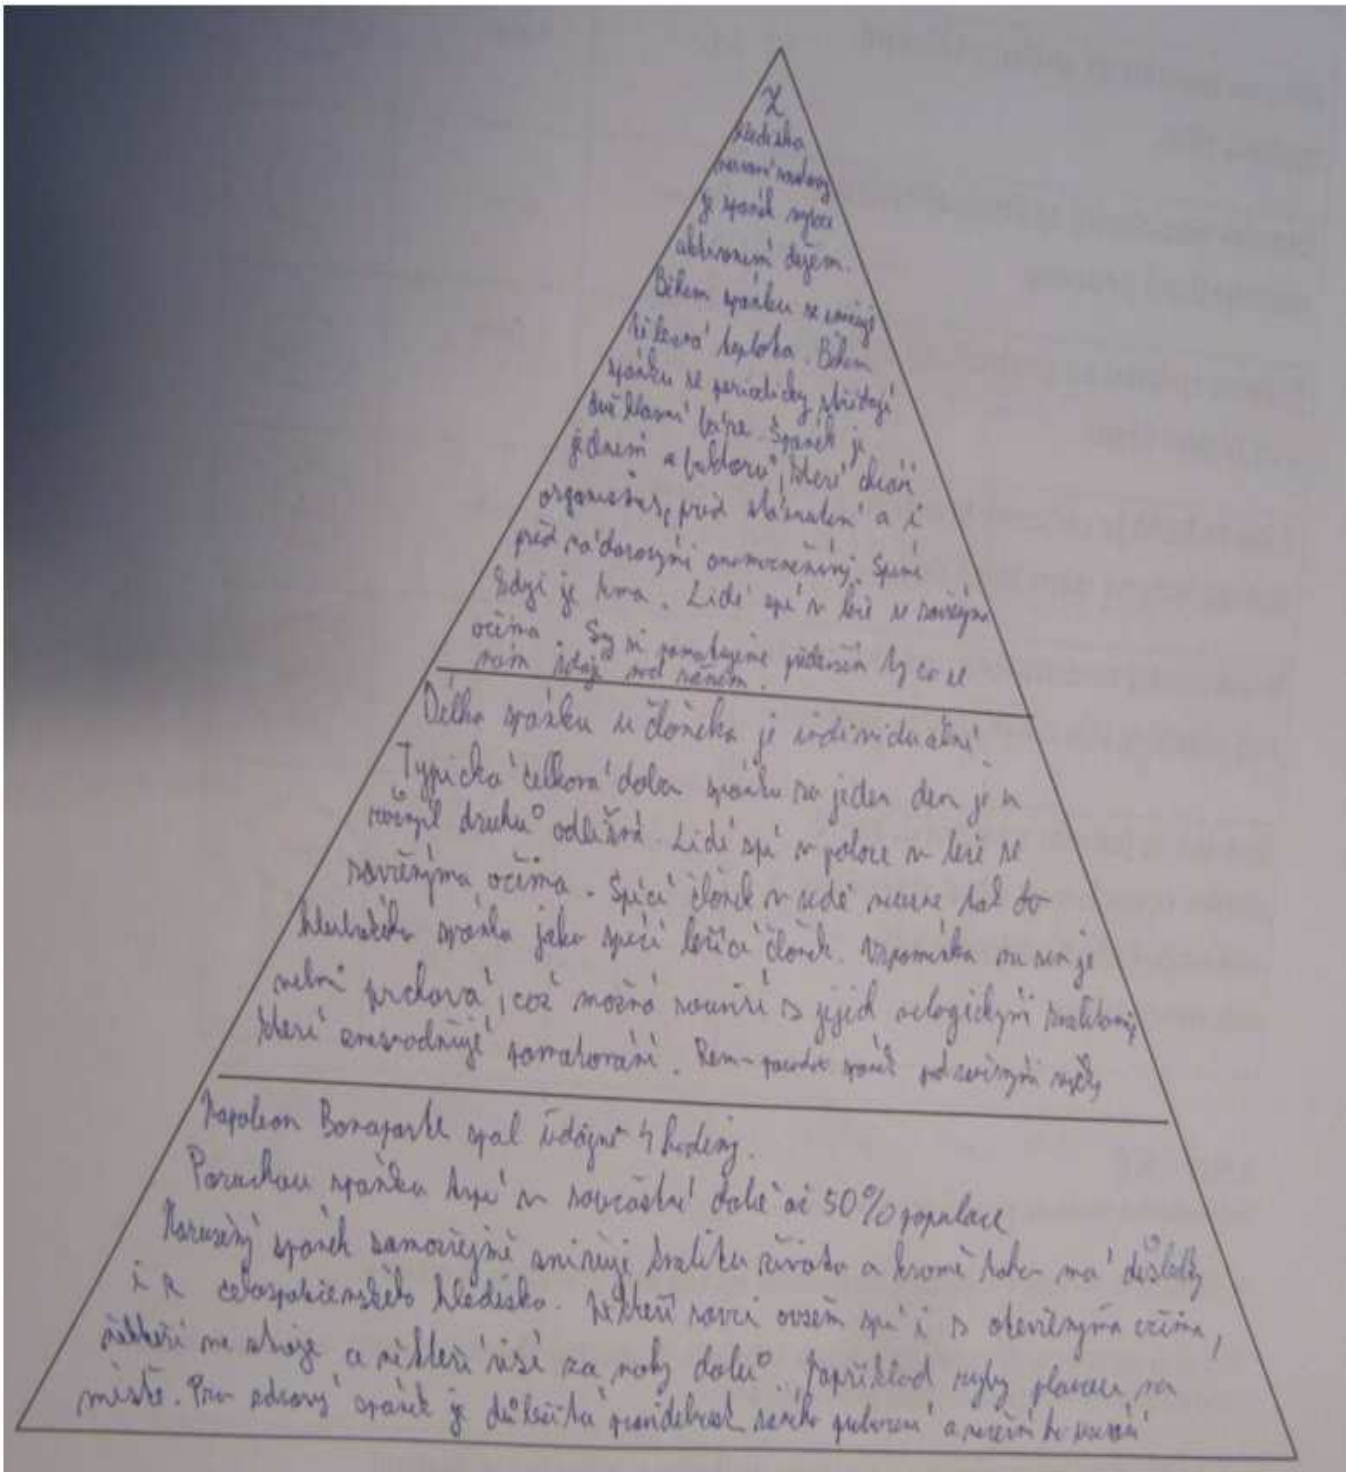 Z
hlediska
nervové soustavy
je spánek vysoce
aktivním dějem.
Během spánku se snižuje
tělesná teplota. Během
spánku se periodicky střídají
dvě hlavní fáze. Spánek je
jedním z faktorů, které chrání
organismus, před stárnutím a i
před nádorovými onemocněními. Spíme
když je tma. Lidé spí v leže se zavřenýma
očima. Sny si pamatujeme především ty co se
nám zdají nad ránem.
Délka spánku u člověka je individuální.
Typická celková doba spánku na jeden den je u
různých druhů odlišná. Lidé spí v poloze v leže se
zavřenýma očima. Spící člověk v sedě neusne tak do
hlubokého spánku jako spící ležící člověk. Vzpomínka na sen je
velmi prchavá, což možná souvisí s jejich nelogickými kvalitami,
které znesnadňují pamatování. Rem - spánek
Napoleon Bonaparte spal údajně 4 hodiny.
Poruchou spánku trpí v současné době až 50% populace
Narušený spánek samozřejmě snižuje kvalitu života a kromě toho má důsledky
i z celospolečenského hlediska. Někteří savci ovšem spí i s otevřenýma očima,
někteří ve stoje a někteří visí za nohy dolů. Například ryby plavou na
místě. Pro zdravý spánek je důležitá pravidelnost